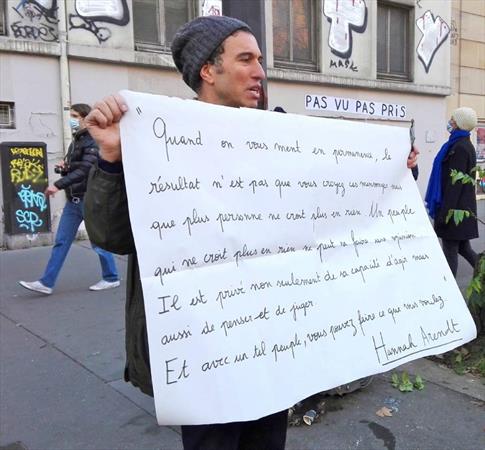 PAS VU PAS PRIS
"Quand on vous ment en permanence, le
résultat n'est pas que vous croyez ces mensonges mais
que plus personne ne croit plus en rien. Un peuple
qui ne croit plus en rien ne peut se faire une opinion.
Il est privé non seulement de sa capacité d'agir mais
aussi de penser et de juger.
Et avec un tel peuple, vous pouvez faire ce que vous voulez."
Hannah Arendt